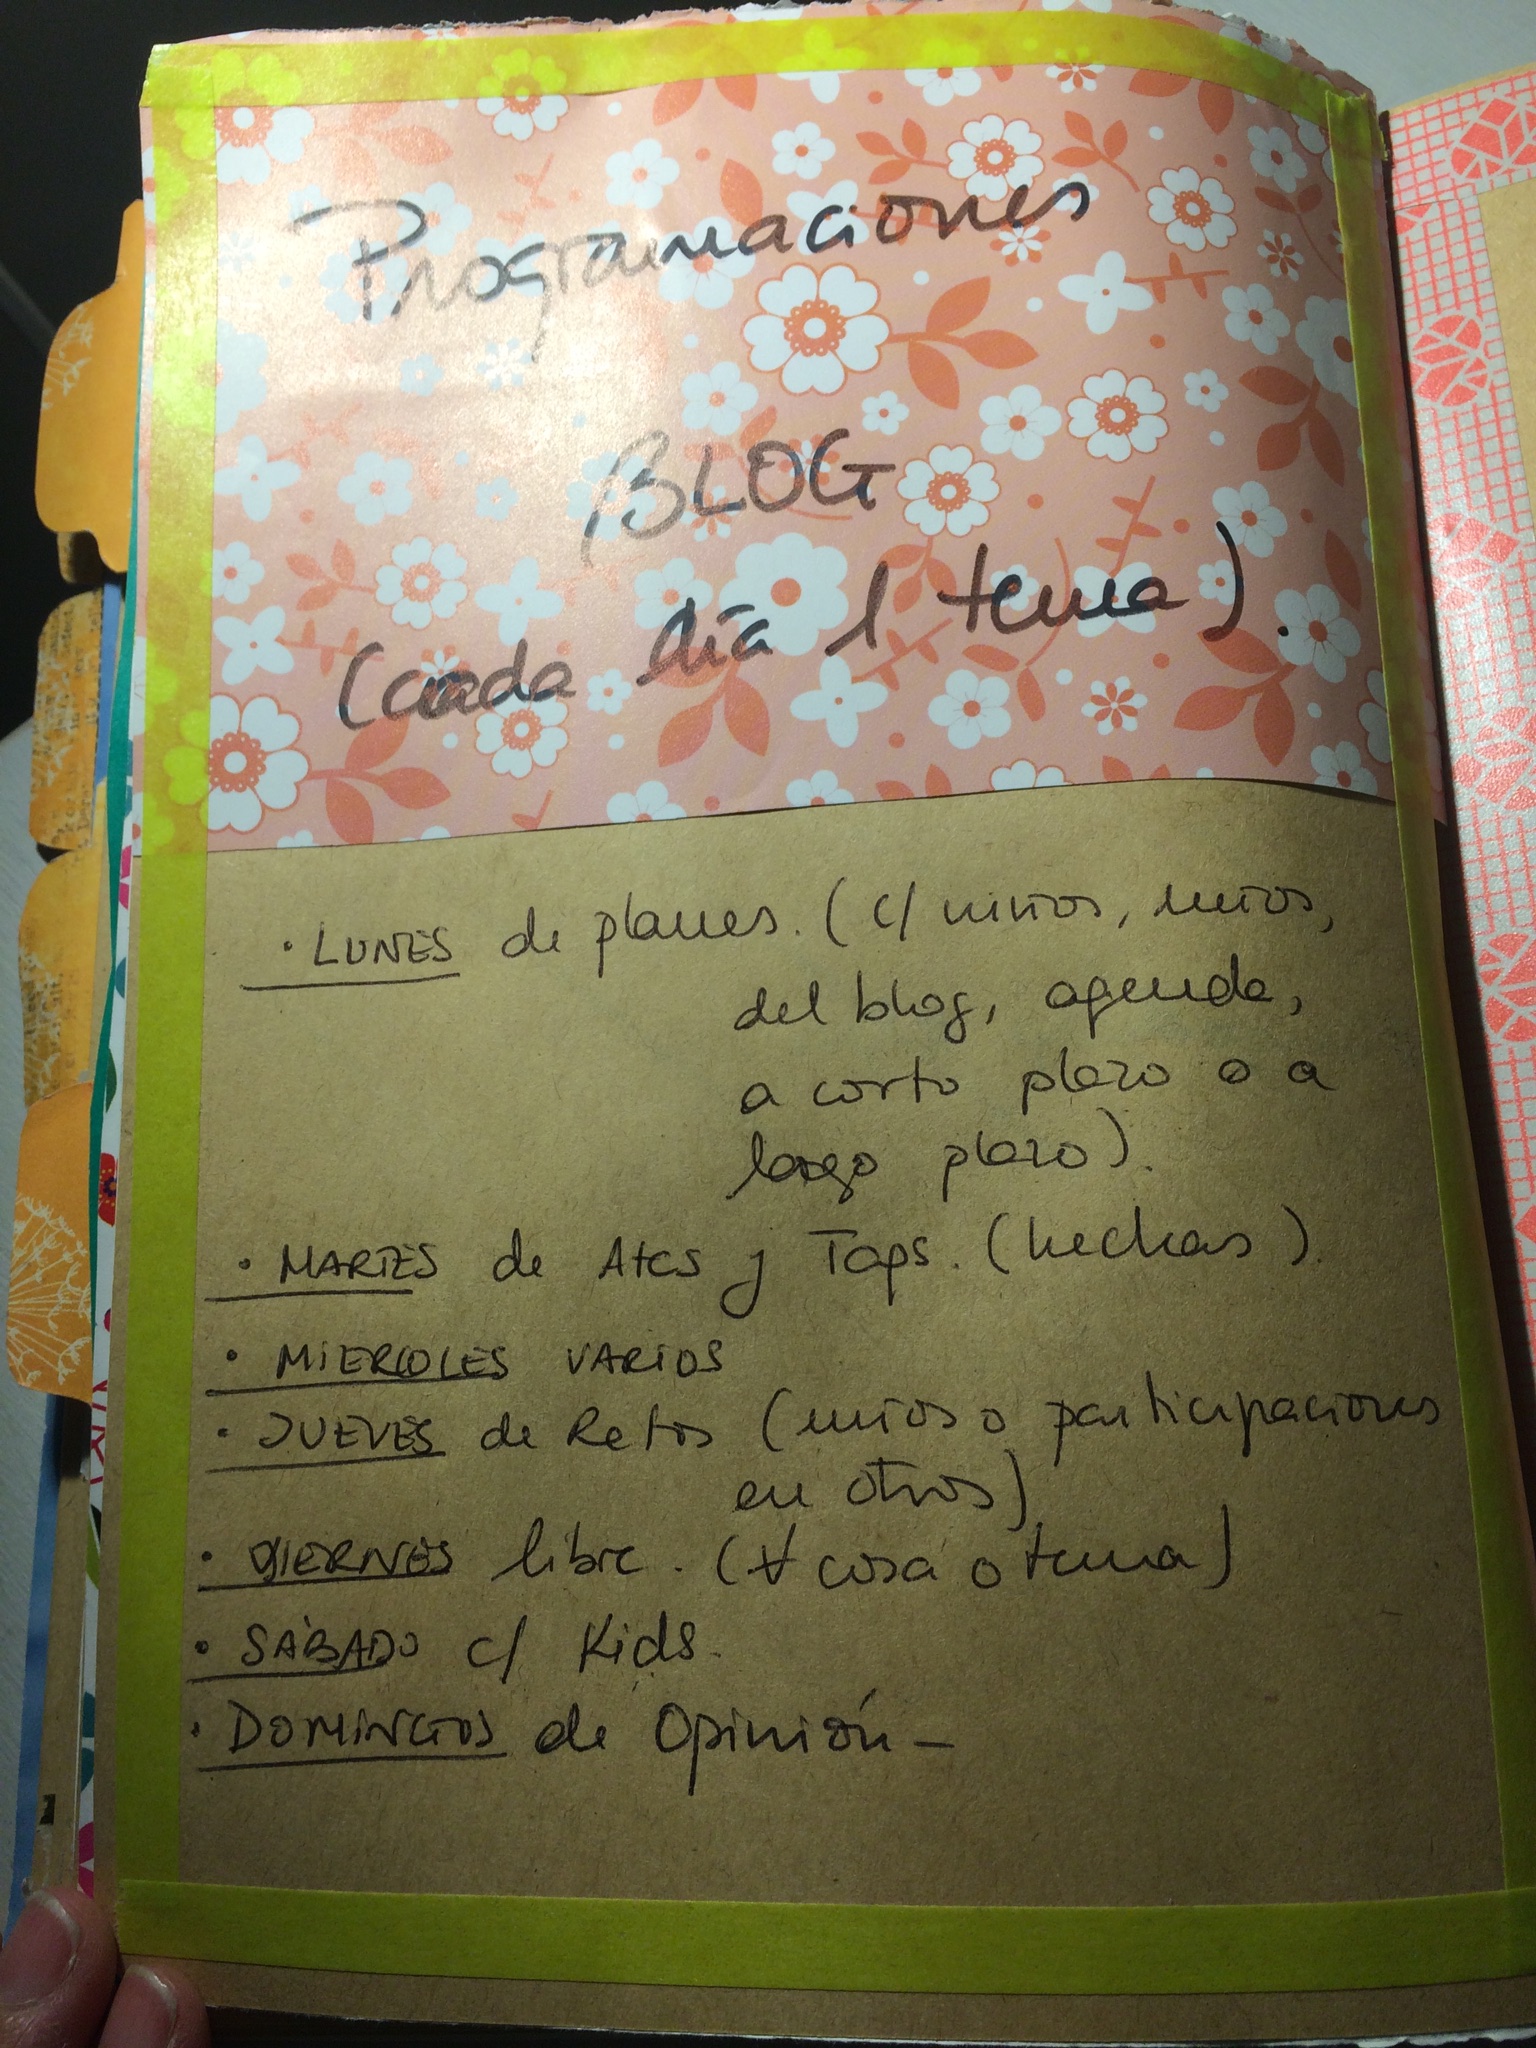 Programaciones
BLOG
(cada día 1 tema).
· LUNES de planes. (c/ niños, míos,
del blog, agenda,
a corto plazo o a
largo plazo).
· MARTES de Atcs y Taps. (hechas).
· MIERCOLES VARIOS
· JUEVES de Retos (míos o participaciones
en otros)
· VIERNES libre. (∀ cosa o tema)
· SÁBADO c/ Kids.
· DOMINGOS de Opinión -